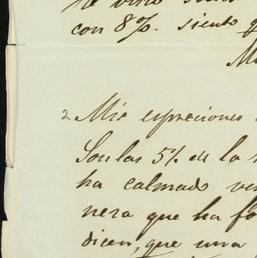 con 8%. siento q
M
2 Mis espreciones
Son las 5½ de la
ha calmado ve
nera que ha fo
dicen, que una